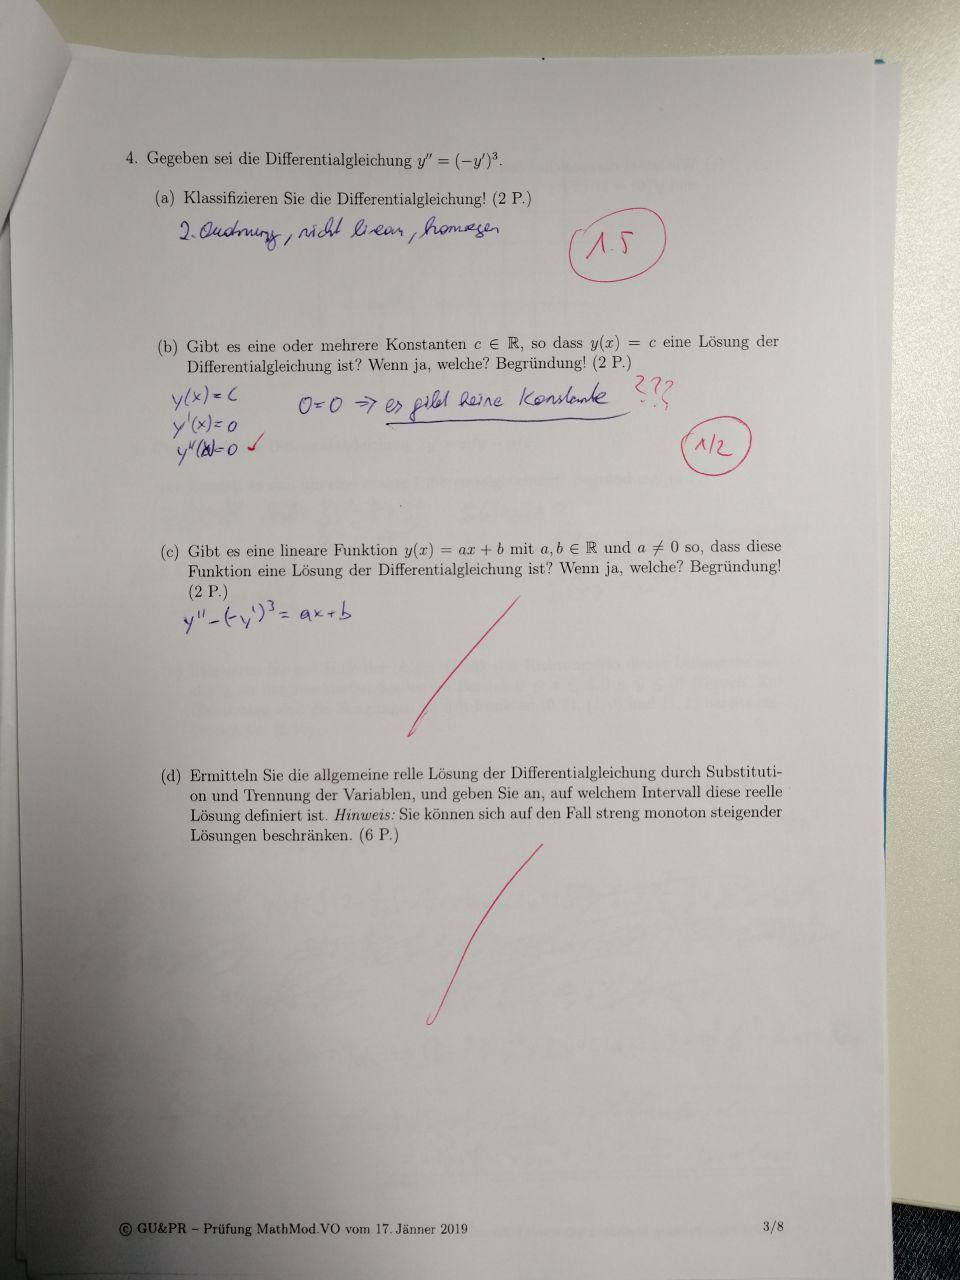 4. Gegeben sei die Differentialgleichung y″ = (−y′)³.
(a) Klassifizieren Sie die Differentialgleichung! (2 P.)
2. Ordnung, nicht linear, homogen
1.5
(b) Gibt es eine oder mehrere Konstanten c ∈ ℝ, so dass y(x) = c eine Lösung der
Differentialgleichung ist? Wenn ja, welche? Begründung! (2 P.)
y(x) = c
0=0 ⇒ es gibt keine Konstante ???
y'(x) = 0
y''(x) = 0 ✓
1/2
(c) Gibt es eine lineare Funktion y(x) = ax + b mit a, b ∈ ℝ und a ≠ 0 so, dass diese
Funktion eine Lösung der Differentialgleichung ist? Wenn ja, welche? Begründung!
(2 P.)
y'' − (−y')³ = ax+b
(d) Ermitteln Sie die allgemeine relle Lösung der Differentialgleichung durch Substituti-
on und Trennung der Variablen, und geben Sie an, auf welchem Intervall diese reelle
Lösung definiert ist. Hinweis: Sie können sich auf den Fall streng monoton steigender
Lösungen beschränken. (6 P.)
© GU&PR – Prüfung MathMod.VO vom 17. Jänner 2019
3/8